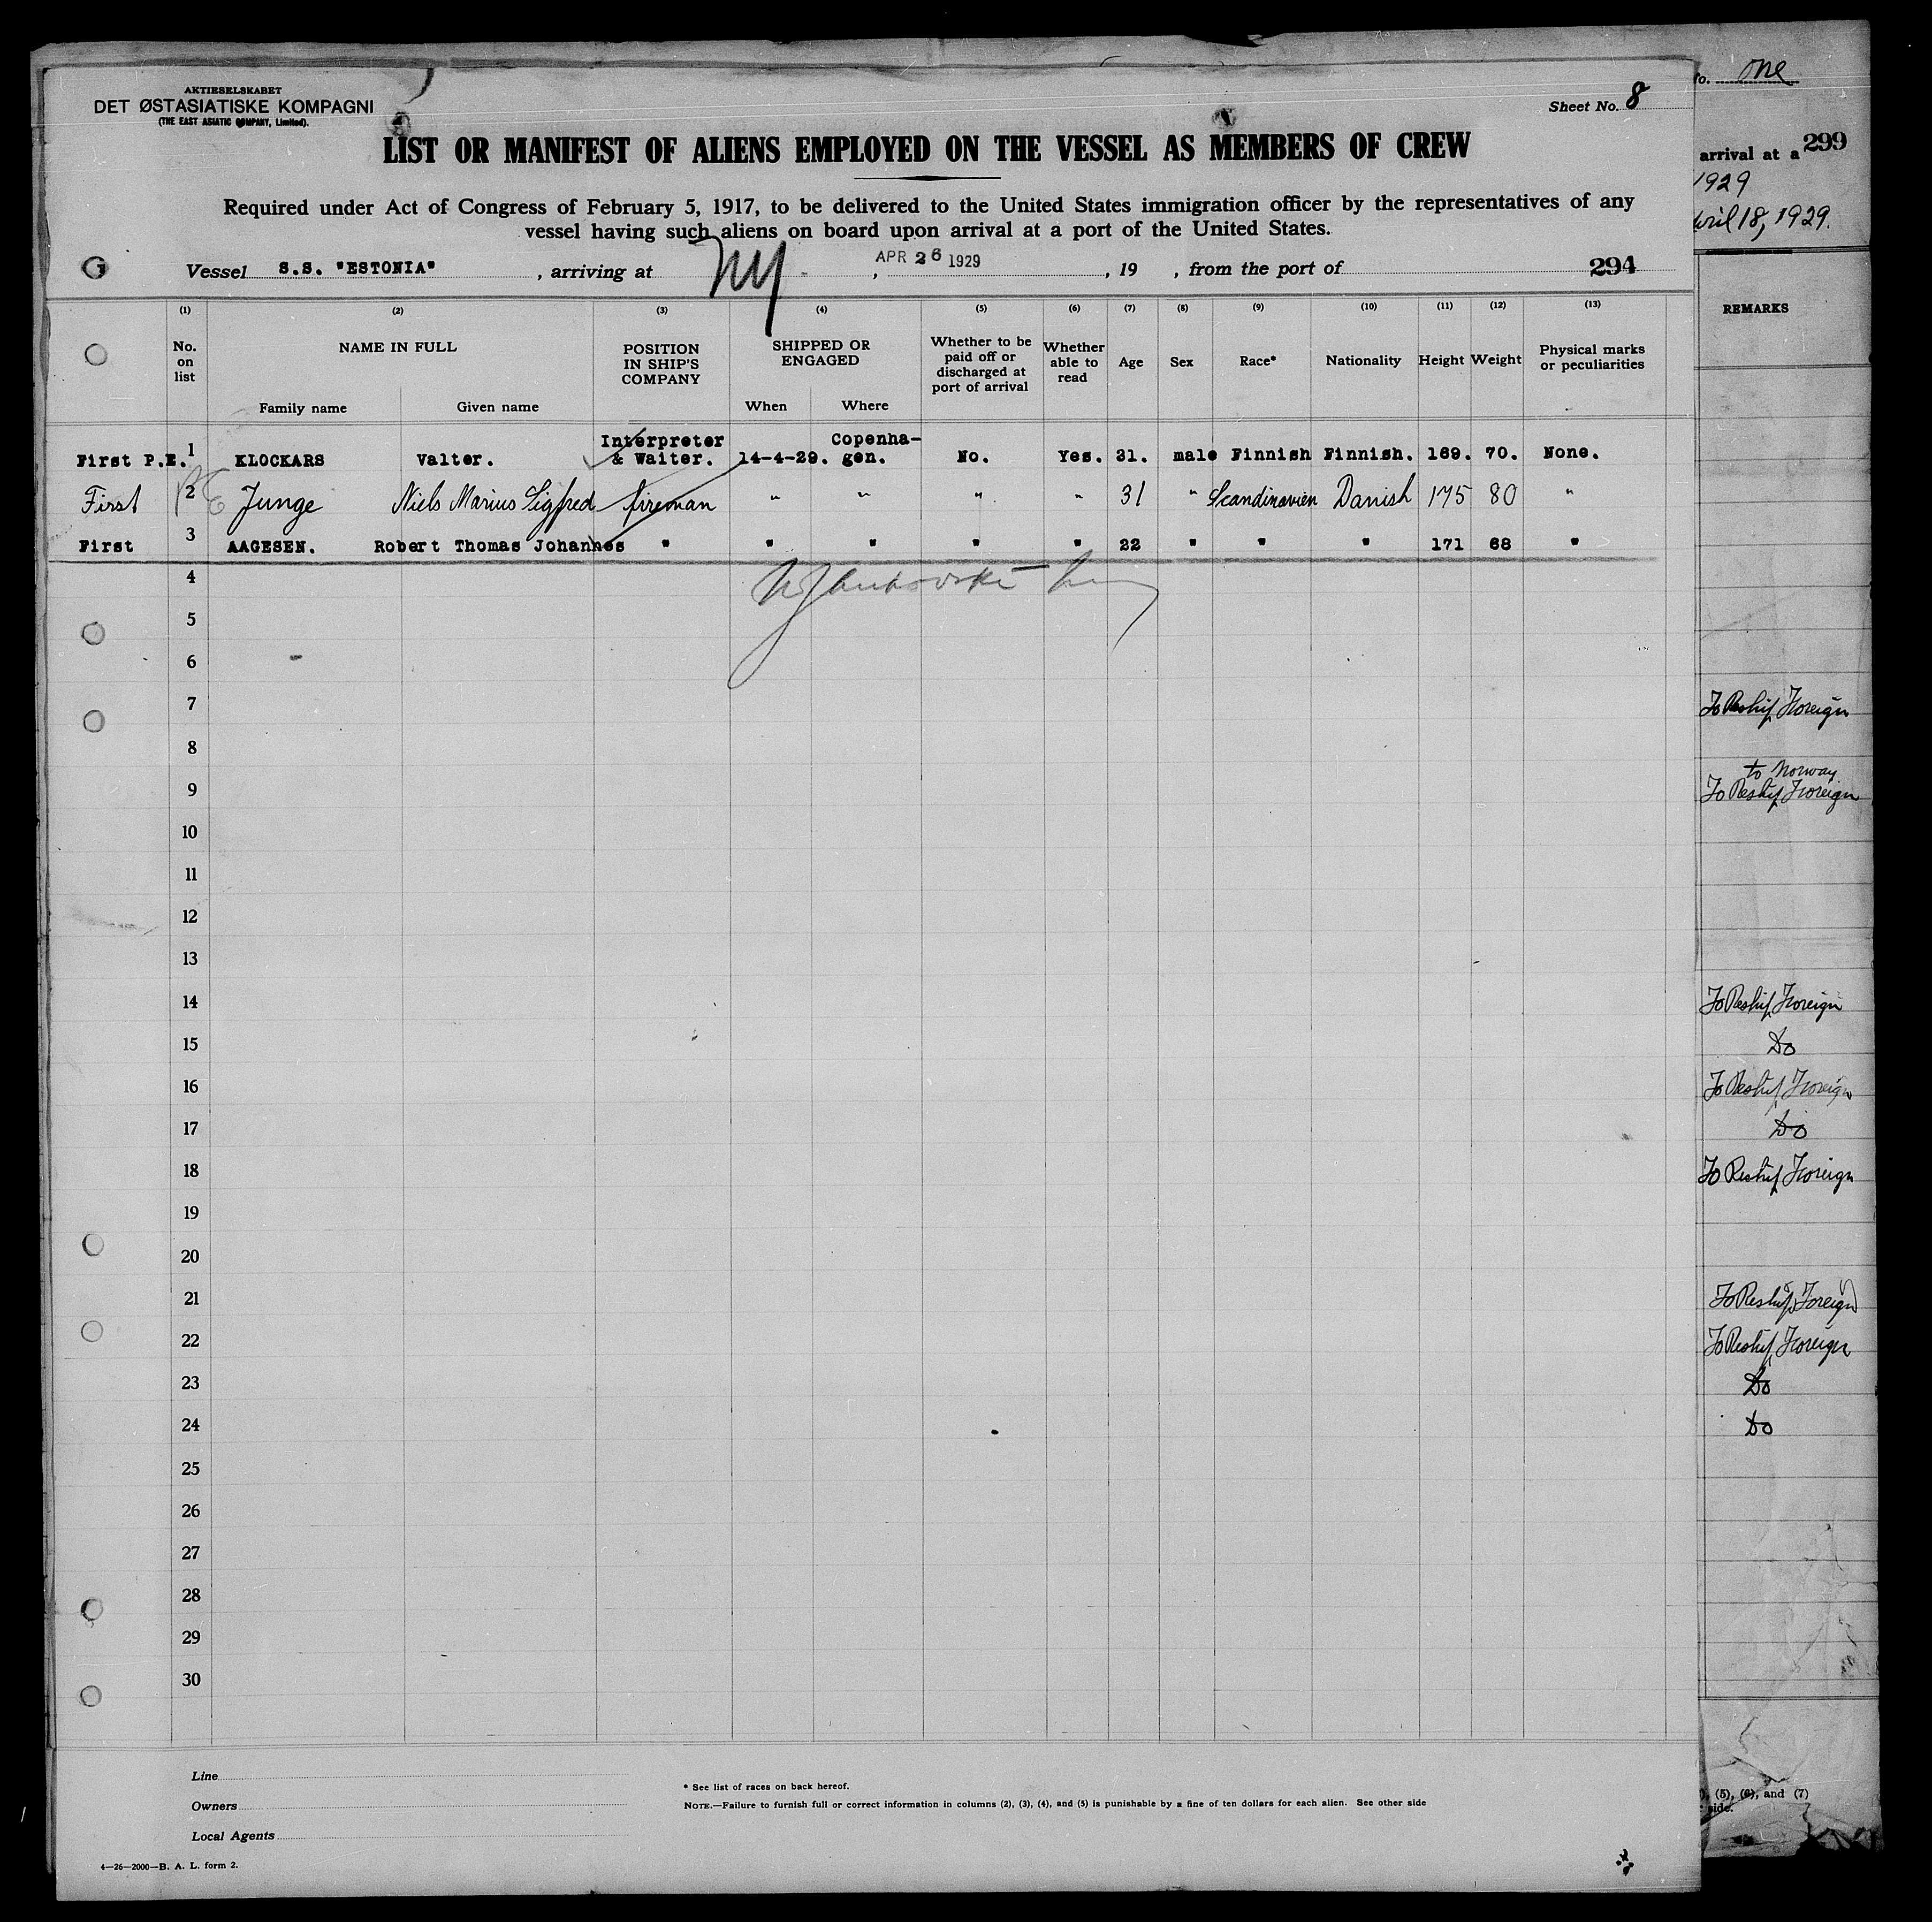 AKTIESELSKABET
DET ØSTASIATISKE KOMPAGNI
(THE EAST ASIATIC COMPANY, Limited).
Sheet No. 8
LIST OR MANIFEST OF ALIENS EMPLOYED ON THE VESSEL AS MEMBERS OF CREW
Required under Act of Congress of February 5, 1917, to be delivered to the United States immigration officer by the representatives of any
vessel having such aliens on board upon arrival at a port of the United States.
Vessel S.S. "ESTONIA", arriving at NY, APR 26 1929, 19 , from the port of 294
(1) (2) (3) (4) (5) (6) (7) (8) (9) (10) (11) (12) (13)
No. on list
NAME IN FULL
Family name Given name
POSITION IN SHIP'S COMPANY
SHIPPED OR ENGAGED
When Where
Whether to be paid off or discharged at port of arrival
Whether able to read
Age
Sex
Race*
Nationality
Height
Weight
Physical marks or peculiarities
First P.E. 1 KLOCKARS Valter. Interpreter & Waiter. 14-4-29. Copenha-gen. No. Yes. 31. male Finnish Finnish. 169. 70. None.
First 2 Junge Niels Marius Sigfred fireman " " " " 31 " Scandinavien Danish 175 80 "
First 3 AAGESEN. Robert Thomas Johannes " " " " " 22 " " " 171 68 "
4
5
6
7
8
9
10
11
12
13
14
15
16
17
18
19
20
21
22
23
24
25
26
27
28
29
30
Line
Owners
Local Agents
* See list of races on back hereof.
NOTE.—Failure to furnish full or correct information in columns (2), (3), (4), and (5) is punishable by a fine of ten dollars for each alien. See other side
4—26—2000—B. A. L. form 2.
o. one
299
arrival at a
1929
April 18, 1929.
REMARKS
To Reship Foreign
to Norway
To Reship Foreign
To Reship Foreign
Do
To Reship Foreign
Do
To Reship Foreign
To Reship Foreign
To Reship Foreign
Do
Do
, (5), (6), and (7)
side.